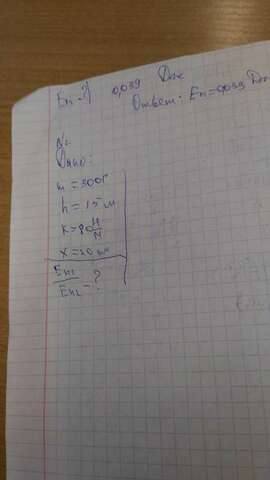 Eп-? 0,039 Дж
Ответ: Eп=0,039 Дж
Дано:
m=300г
h=15м
k=80 Н/М
x=20 см
Eп1/Eп2-?